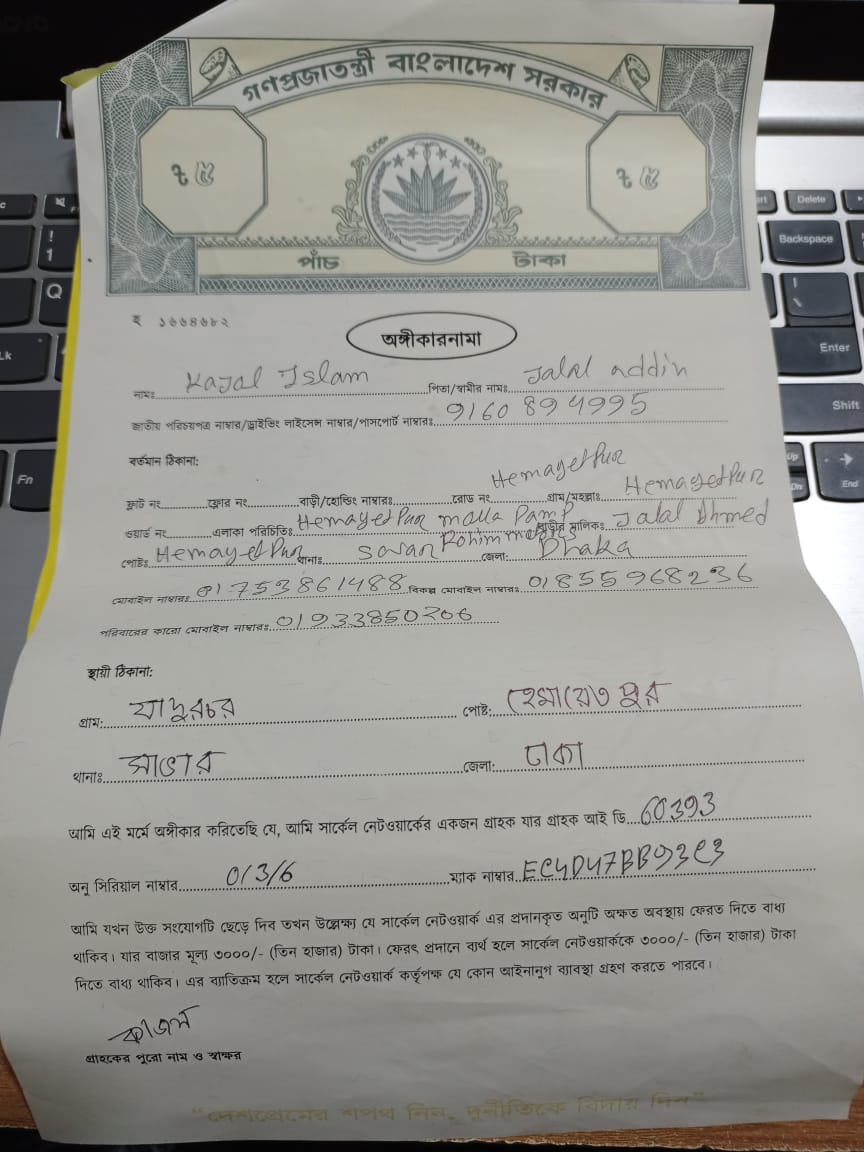 গণপ্রজাতন্ত্রী বাংলাদেশ সরকার
৳ ৫ ৳ ৫
পাঁচ টাকা
হ ১৬৬৪৬৮২
অঙ্গীকারনামা
নামঃ Kajal Islam পিতা/স্বামীর নামঃ Jalal addin
জাতীয় পরিচয়পত্র নাম্বার/ড্রাইভিং লাইসেন্স নাম্বার/পাসপোর্ট নাম্বারঃ 9160894995
বর্তমান ঠিকানা:
ফ্লাট নং ফ্লোর নং বাড়ী/হোল্ডিং নাম্বারঃ রোড নং Hemayetpur গ্রাম/মহল্লাঃ Hemayetpur
ওয়ার্ড নং এলাকা পরিচিতিঃ Hemayetpur molla Pamp বাড়ীর মালিকঃ Jalal Ahmed
পোষ্টঃ Hemayetpur থানাঃ Savar Rohim জেলা: Dhaka
মোবাইল নাম্বারঃ 01753861488 বিকল্প মোবাইল নাম্বারঃ 01855968236
পরিবারের কারো মোবাইল নাম্বারঃ 01933850206
স্থায়ী ঠিকানা:
গ্রাম: যাদুরচর পোষ্ট: হেমায়েতপুর
থানাঃ সাভার জেলা: ঢাকা
আমি এই মর্মে অঙ্গীকার করিতেছি যে, আমি সার্কেল নেটওয়ার্কের একজন গ্রাহক যার গ্রাহক আই ডি 60393
অনু সিরিয়াল নাম্বার 0/3/6 ম্যাক নাম্বার EC4D47BB93E3
আমি যখন উক্ত সংযোগটি ছেড়ে দিব তখন উল্লেক্ষ্য যে সার্কেল নেটওয়ার্ক এর প্রদানকৃত অনুটি অক্ষত অবস্থায় ফেরত দিতে বাধ্য
থাকিব। যার বাজার মূল্য ৩০০০/- (তিন হাজার) টাকা। ফেরৎ প্রদানে ব্যর্থ হলে সার্কেল নেটওয়ার্ককে ৩০০০/- (তিন হাজার) টাকা
দিতে বাধ্য থাকিব। এর ব্যাতিক্রম হলে সার্কেল নেটওয়ার্ক কর্তৃপক্ষ যে কোন আইনানুগ ব্যাবস্থা গ্রহণ করতে পারবে।
কাজল
গ্রাহকের পুরো নাম ও স্বাক্ষর
"দেশপ্রেমের শপথ নিন, দুর্নীতিকে বিদায় দিন"
Delete
Backspace
Enter
Shift
End
Fn
Q
! 1